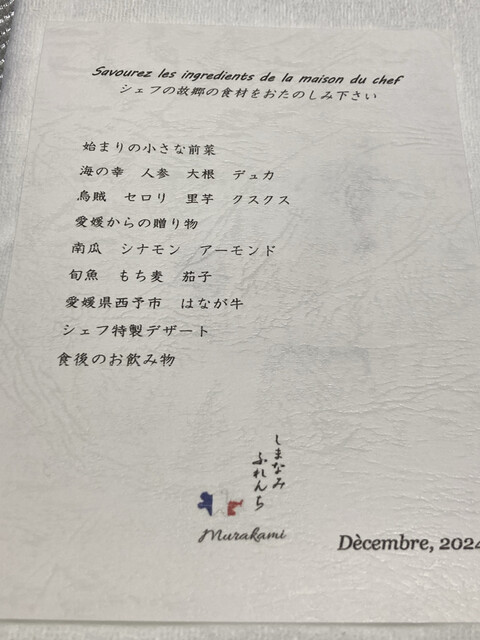 Savourez les ingredients de la maison du chef
シェフの故郷の食材をおたのしみ下さい
始まりの小さな前菜
海の幸　人参　大根　デュカ
烏賊　セロリ　里芋　クスクス
愛媛からの贈り物
南瓜　シナモン　アーモンド
旬魚　もち麦　茄子
愛媛県西予市　はなが牛
シェフ特製デザート
食後のお飲み物
しまなみ
ふれんち
Murakami
Dècembre, 2024